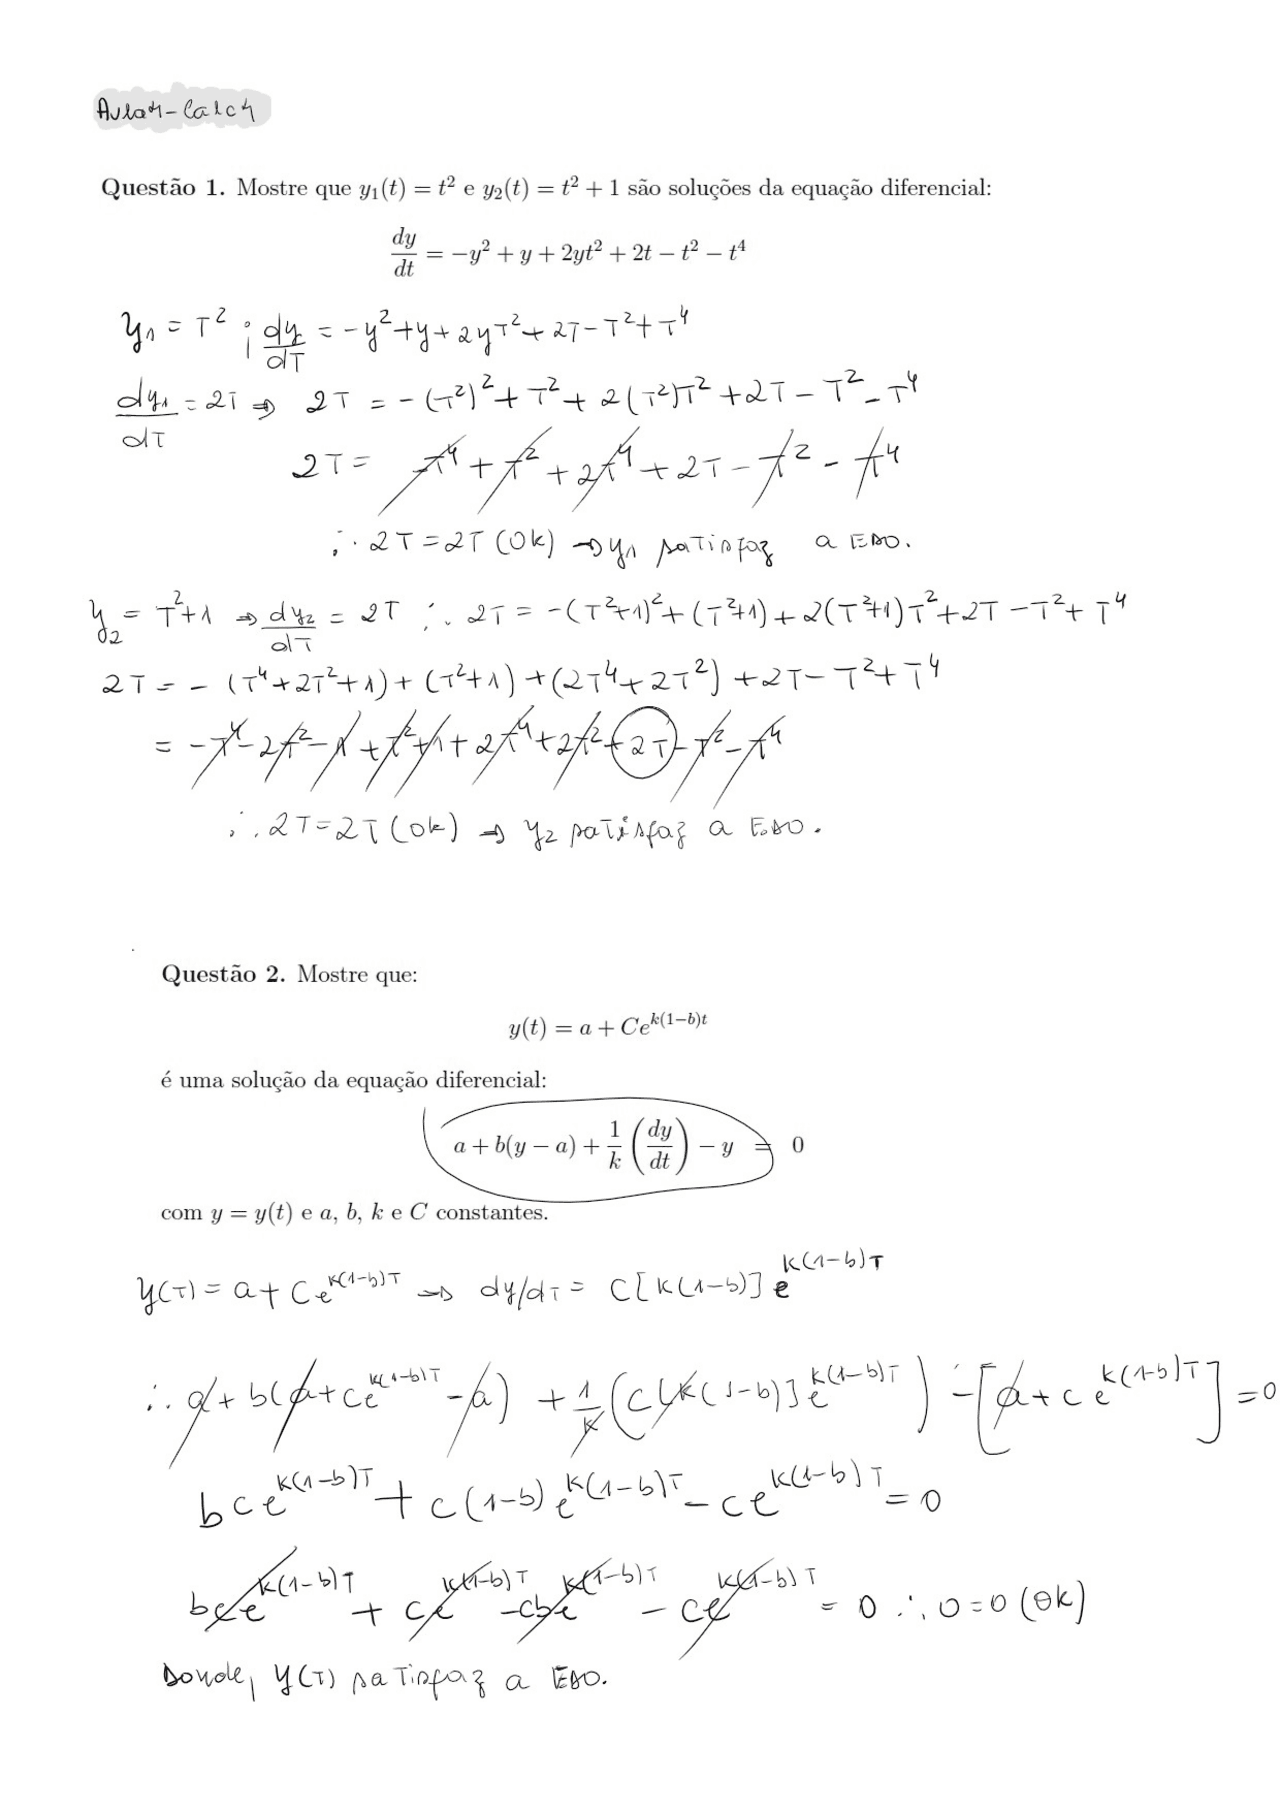 Aula 4 - Calc 4
Questão 1. Mostre que y₁(t) = t² e y₂(t) = t² + 1 são soluções da equação diferencial:
dy/dt = −y² + y + 2yt² + 2t − t² − t⁴
y₁ = T² ; dy/dT = -y² + y + 2yT² + 2T - T² + T⁴
dy₁/dT = 2T ⇒ 2T = -(T²)² + T² + 2(T²)T² + 2T - T² - T⁴
2T = -T⁴ + T² + 2T⁴ + 2T - T² - T⁴
∴ 2T = 2T (Ok) → y₁ satisfaz a EDO.
y₂ = T² + 1 ⇒ dy₂/dT = 2T ∴ 2T = -(T²+1)² + (T²+1) + 2(T²+1)T² + 2T - T² + T⁴
2T = - (T⁴ + 2T² + 1) + (T² + 1) + (2T⁴ + 2T²) + 2T - T² + T⁴
= -T⁴ - 2T² - 1 + T² + 1 + 2T⁴ + 2T² + 2T - T² - T⁴
∴ 2T = 2T (ok) ⇒ y₂ satisfaz a EDO.
Questão 2. Mostre que:
y(t) = a + Ce^{k(1−b)t}
é uma solução da equação diferencial:
a + b(y − a) + 1/k (dy/dt) − y = 0
com y = y(t) e a, b, k e C constantes.
y(T) = a + Ce^{K(1-b)T} → dy/dT = C[K(1-b)] e^{K(1-b)T}
∴ a + b(a + Ce^{K(1-b)T} - a) + 1/K (C[K(1-b)] e^{K(1-b)T}) - [a + Ce^{K(1-b)T}] = 0
bCe^{K(1-b)T} + C(1-b) e^{K(1-b)T} - Ce^{K(1-b)T} = 0
bCe^{K(1-b)T} + Ce^{K(1-b)T} - Cbe^{K(1-b)T} - Ce^{K(1-b)T} = 0 ∴ 0 = 0 (Ok)
Donde, y(T) satisfaz a EDO.